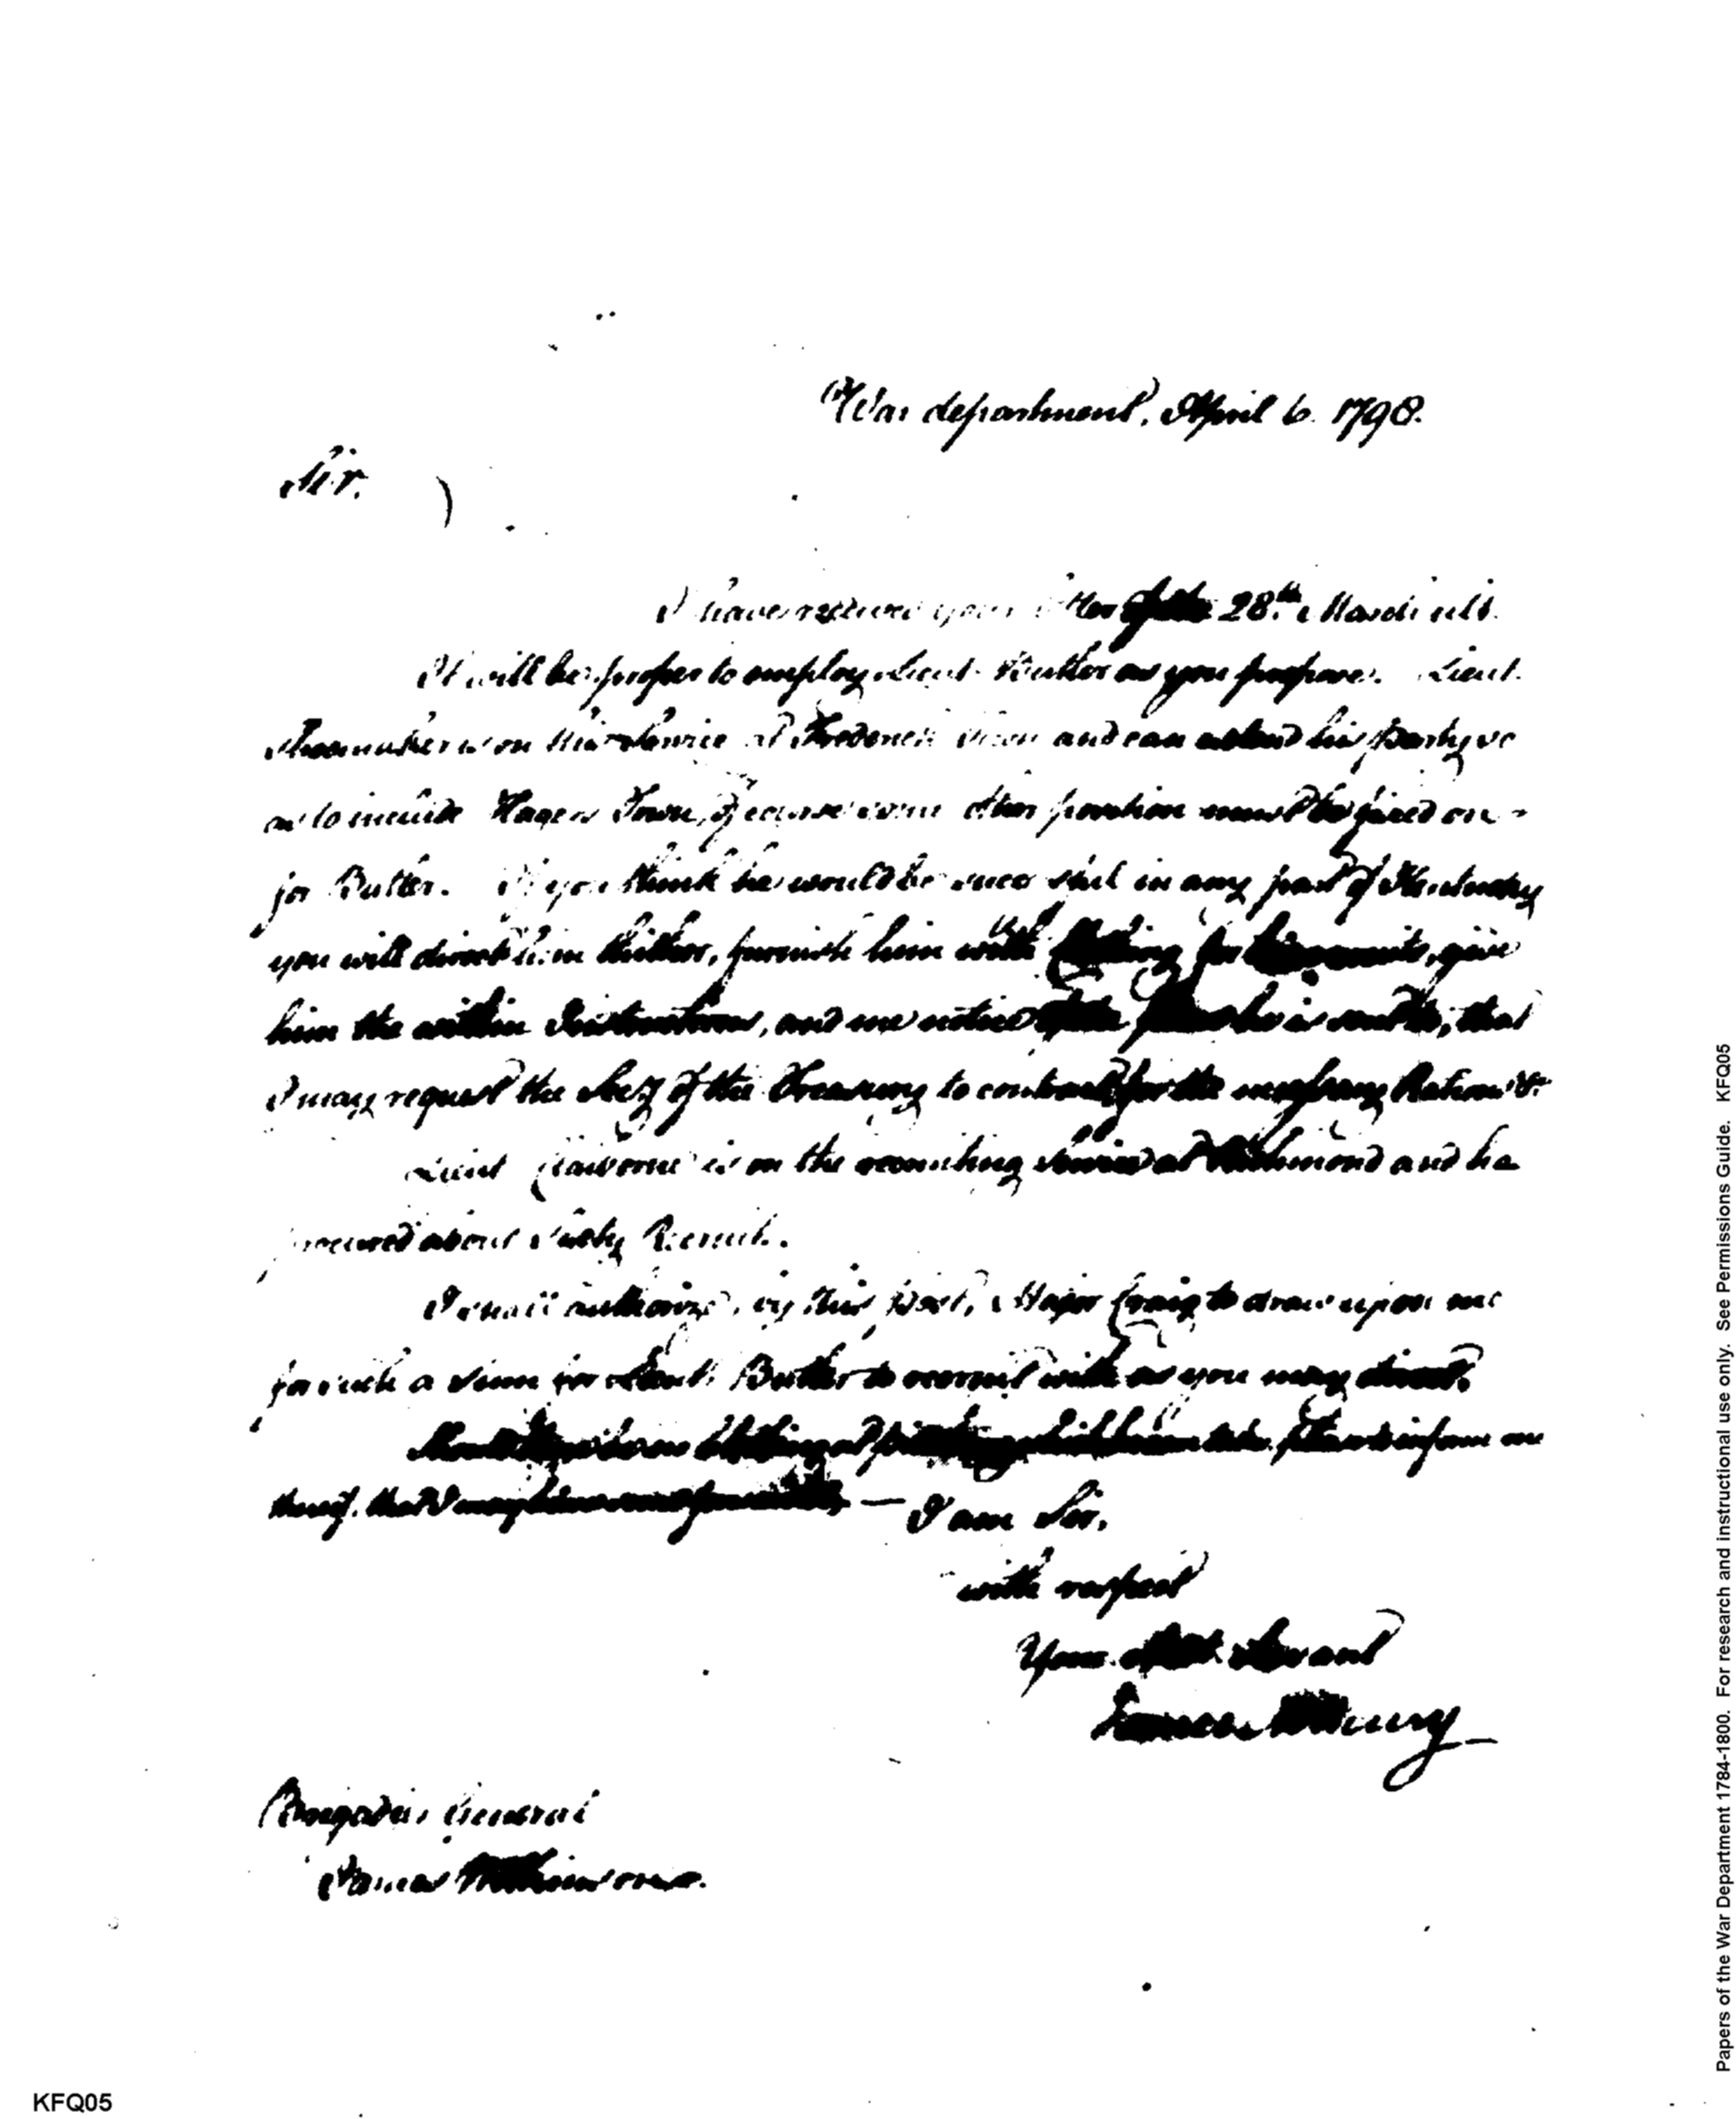 War department, April 6. 1798.
Sir.
I have received your letter of the 28th March ult.
It will be proper to employ Lieut. Butler as you propose. Lieut.
Shoemaker is on this service at Frederick Town and can extend his party so
as to include Hagers Town, of course some other position must be fixed on
for Butler. If you think he would be successful in any part of Kentucky
you will direct him thither, furnish him with Clothing for his recruits, give
him the within Instructions, and me notice of the place he is sent to, that
I may request the Secy of the Treasury to contract for the necessary Rations &c.
Lieut is on the recruiting service at Richmond and has
procured about Recruits.
I shall authorize, by this post, Major Craig to draw upon me
for such a sum for Lieut. Butler to recruit with as you may direct.
Clothing at inform me
that I may — I am Sir,
with respect
Your Obt. Servant
James McHenry
Brigadier General
James Wilkinson.
KFQ05
Papers of the War Department 1784-1800. For research and instructional use only. See Permissions Guide. KFQ05